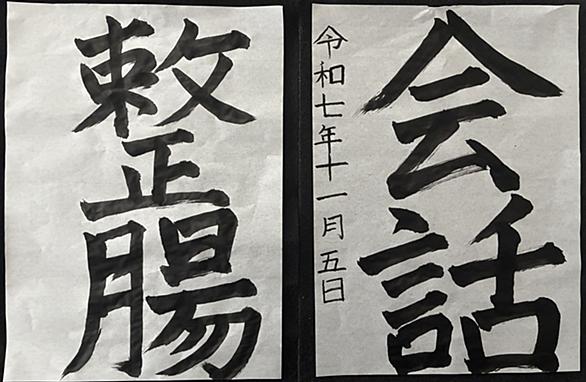 会話
令和七年十一月五日
整腸